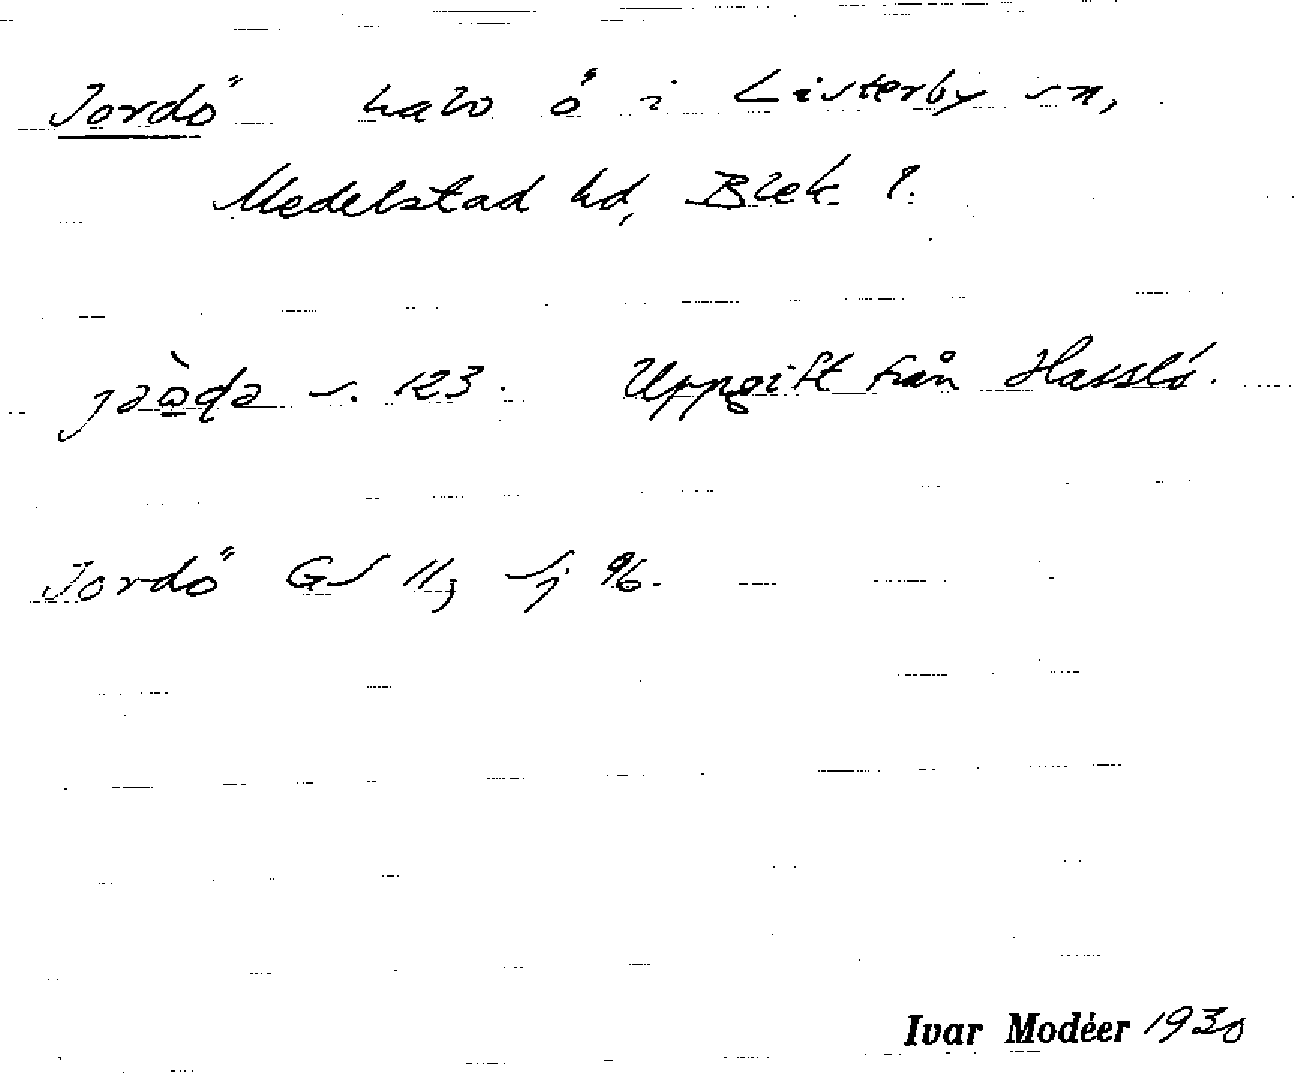 Jordö halvö i Listerby sn,
Medelstad hd, Blek. l.
s. 123. Uppgift från Hasslö.
Jordö GS 11, sj 96.
Ivar Modéer 1930